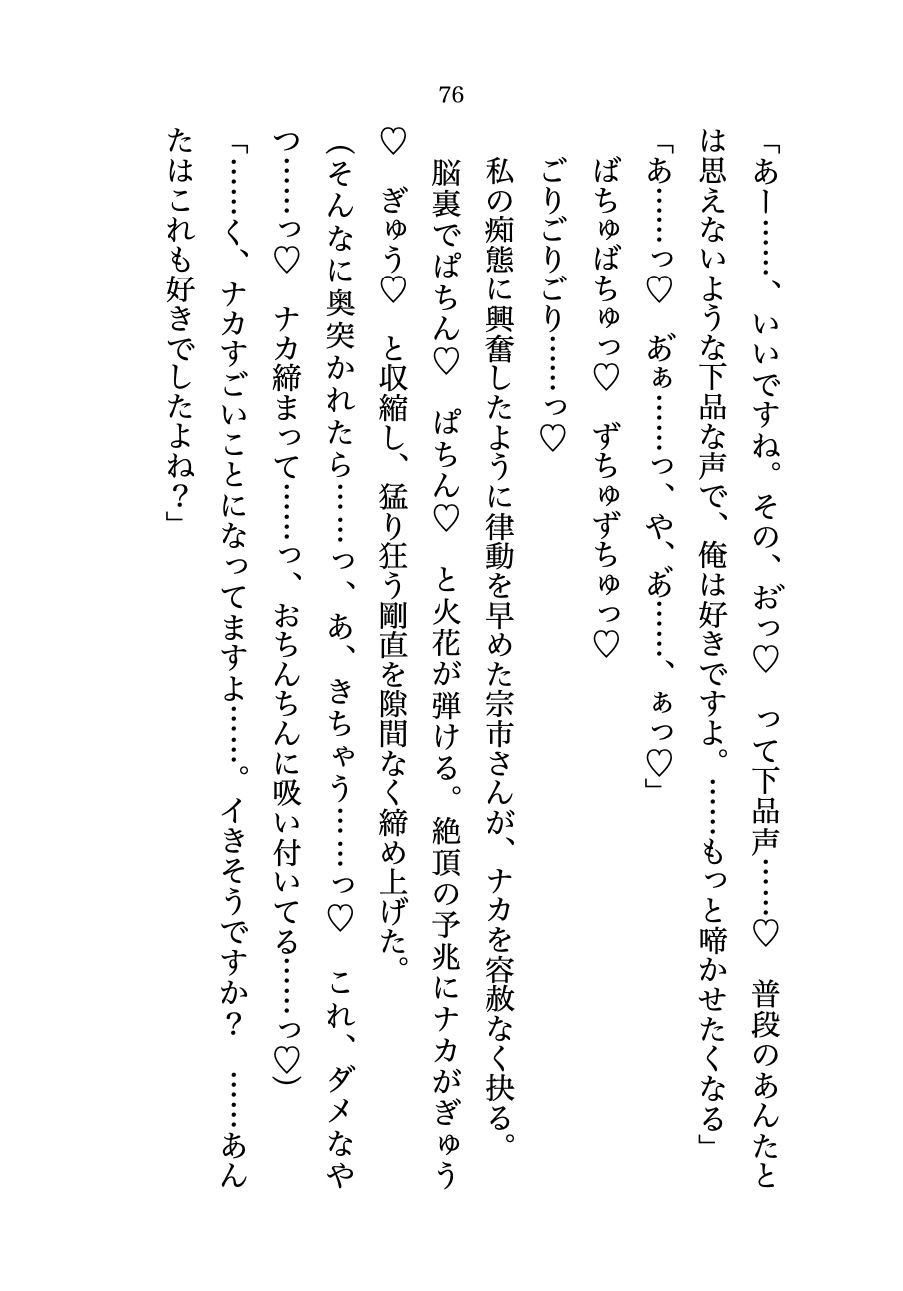 76
「あー……、いいですね。その、お゙っ♡　って下品声……♡　普段のあんたと
は思えないような下品な声で、俺は好きですよ。……もっと啼かせたくなる」
「あ……っ♡　あ゙ぁ……っ、や、あ゙……、ぁっ♡」
　ばちゅばちゅっ♡　ずちゅずちゅっ♡
　ごりごりごり……っ♡
　私の痴態に興奮したように律動を早めた宗市さんが、ナカを容赦なく抉る。
　脳裏でぱちん♡　ぱちん♡　と火花が弾ける。絶頂の予兆にナカがぎゅう
♡　ぎゅう♡　と収縮し、猛り狂う剛直を隙間なく締め上げた。
(そんなに奥突かれたら……っ、あ、きちゃう……っ♡　これ、ダメなや
つ……っ♡　ナカ締まって……っ、おちんちんに吸い付いてる……っ♡)
「……く、ナカすごいことになってますよ……。イきそうですか？　……あん
たはこれも好きでしたよね？」